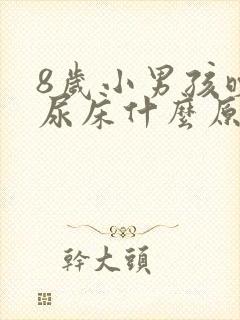 8歲小男孩
尿床什麼原
幹大頭